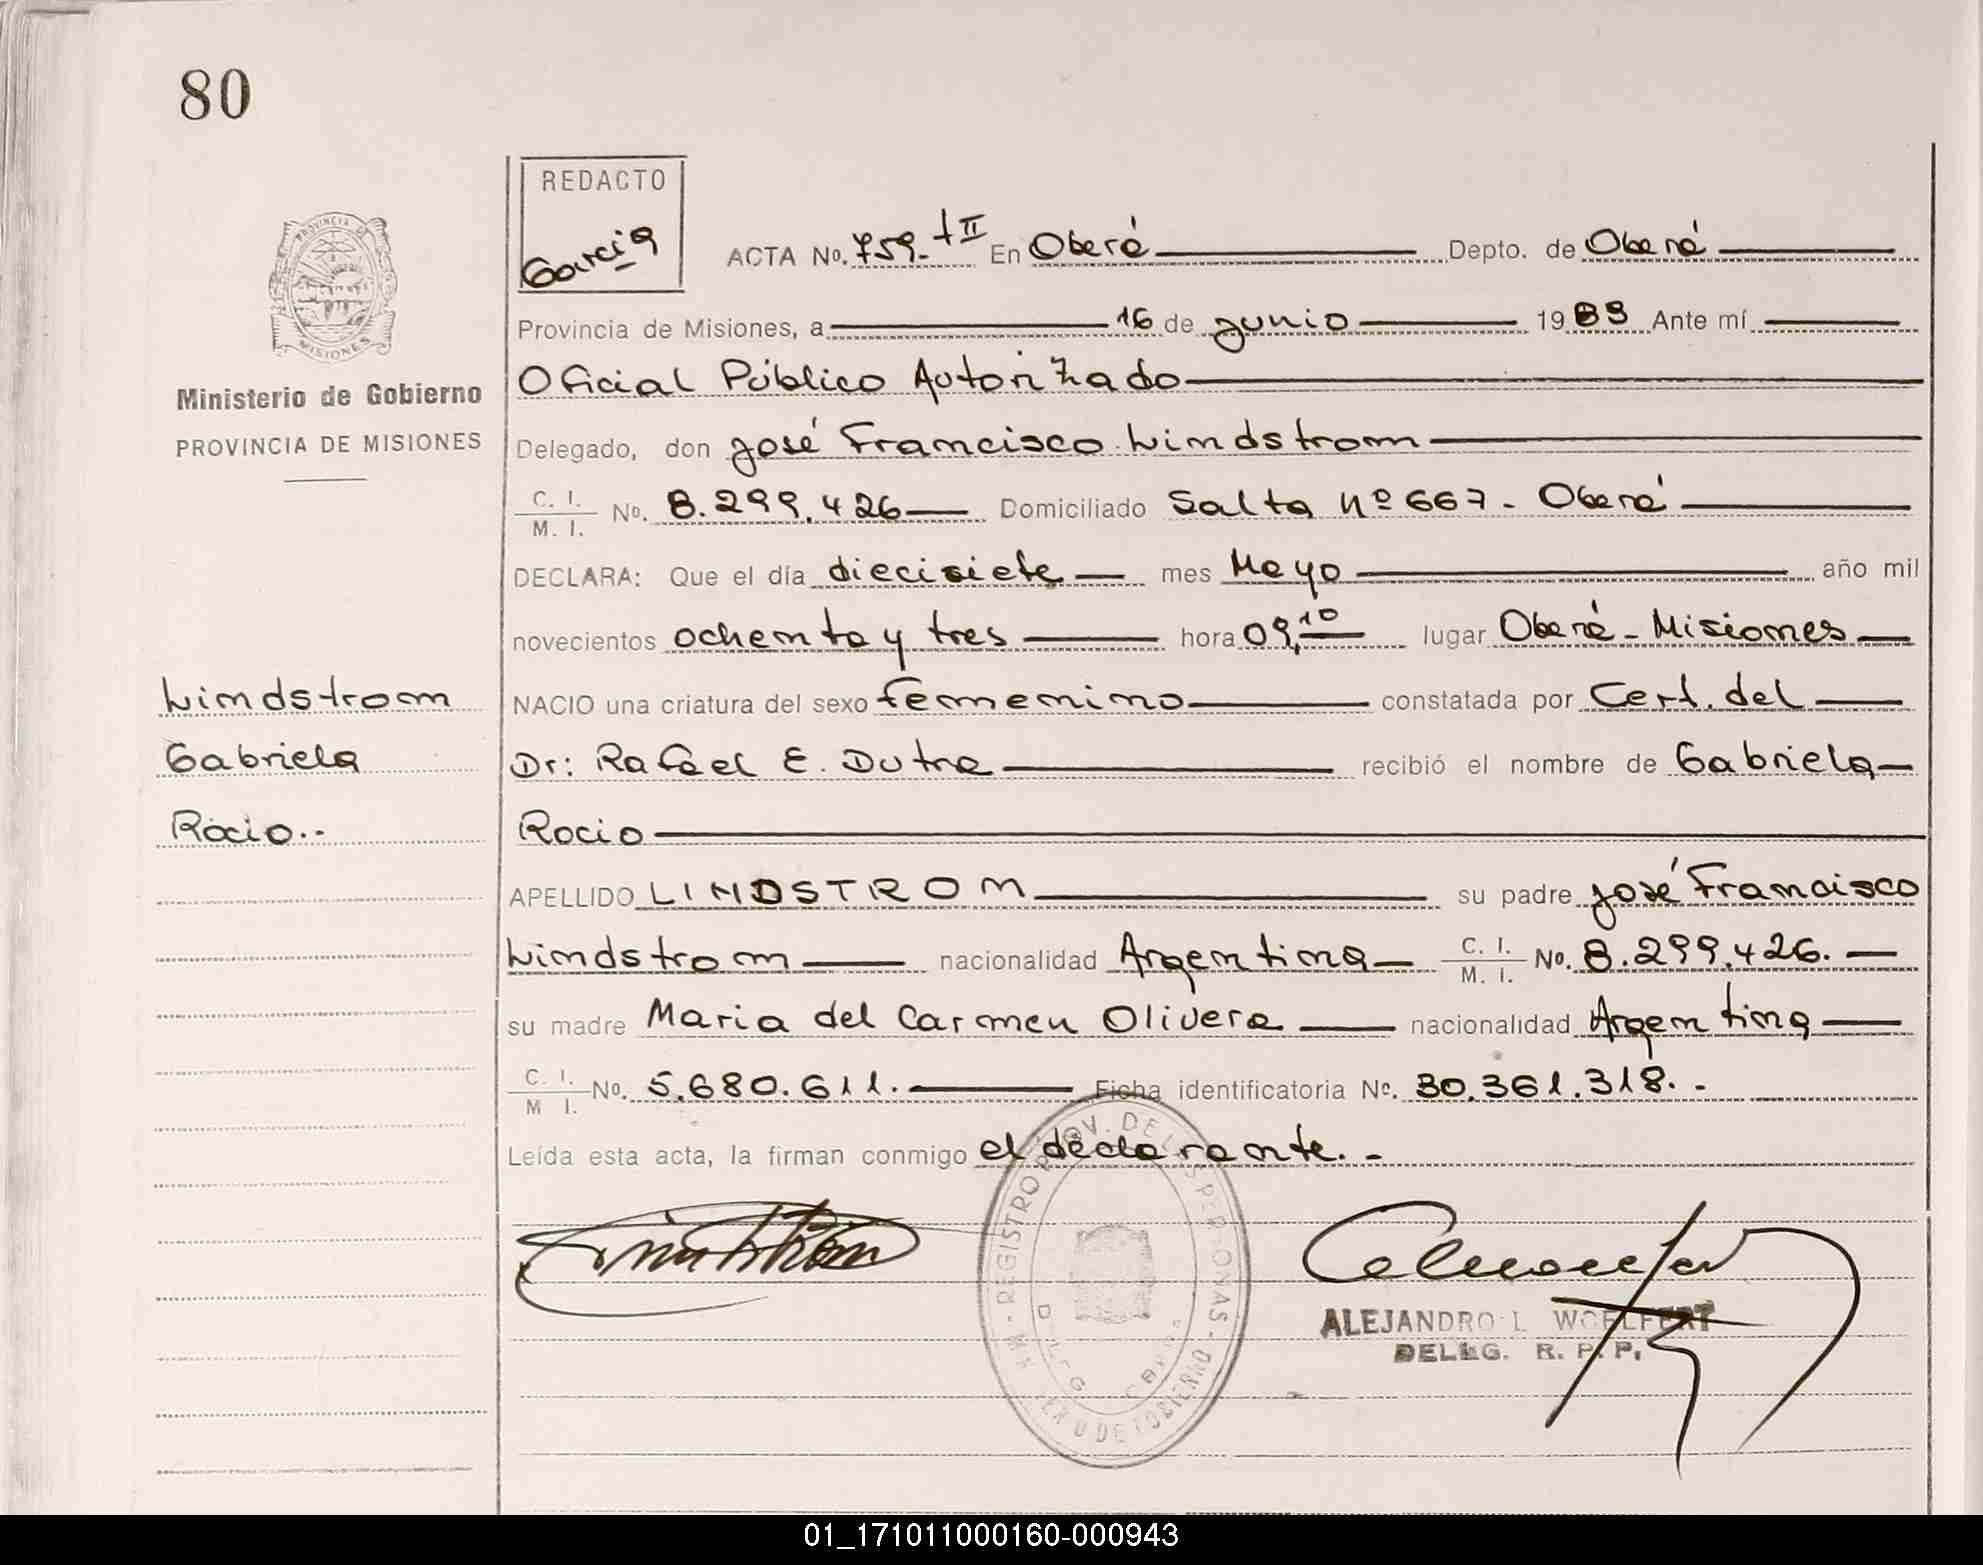 80
REDACTO
Garcia
ACTA No. 759. tII En Oberá Depto. de Oberá
Provincia de Misiones, a 16 de junio 1983 Ante mí
Oficial Público Autorizado
Ministerio de Gobierno
PROVINCIA DE MISIONES
Delegado, don José Francisco Lindstrom
C. I. / M. I. No. 8.299.426 Domiciliado Salta nº 667 - Oberá
DECLARA: Que el día diecisiete mes Mayo año mil
novecientos ochenta y tres hora 09,10 lugar Oberá - Misiones
Lindstrom
NACIO una criatura del sexo femenino constatada por Cert. del
Gabriela
Dr: Rafael E. Dutra recibió el nombre de Gabriela
Rocio..
Rocio
APELLIDO LINDSTROM su padre José Francisco
Lindstrom nacionalidad Argentina C. I. / M. I. No. 8.299.426.
su madre Maria del Carmen Olivera nacionalidad Argentina
C. I. / M I. No. 5.680.611. Ficha identificatoria No. 30.361.318. -
Leída esta acta, la firman conmigo el declarante. -
REGISTRO PROV. DE LAS PERSONAS
ALEJANDRO L WOELFERT
DELEG. R. P. P.
PROVINCIA DE
MISIONES
01_171011000160-000943